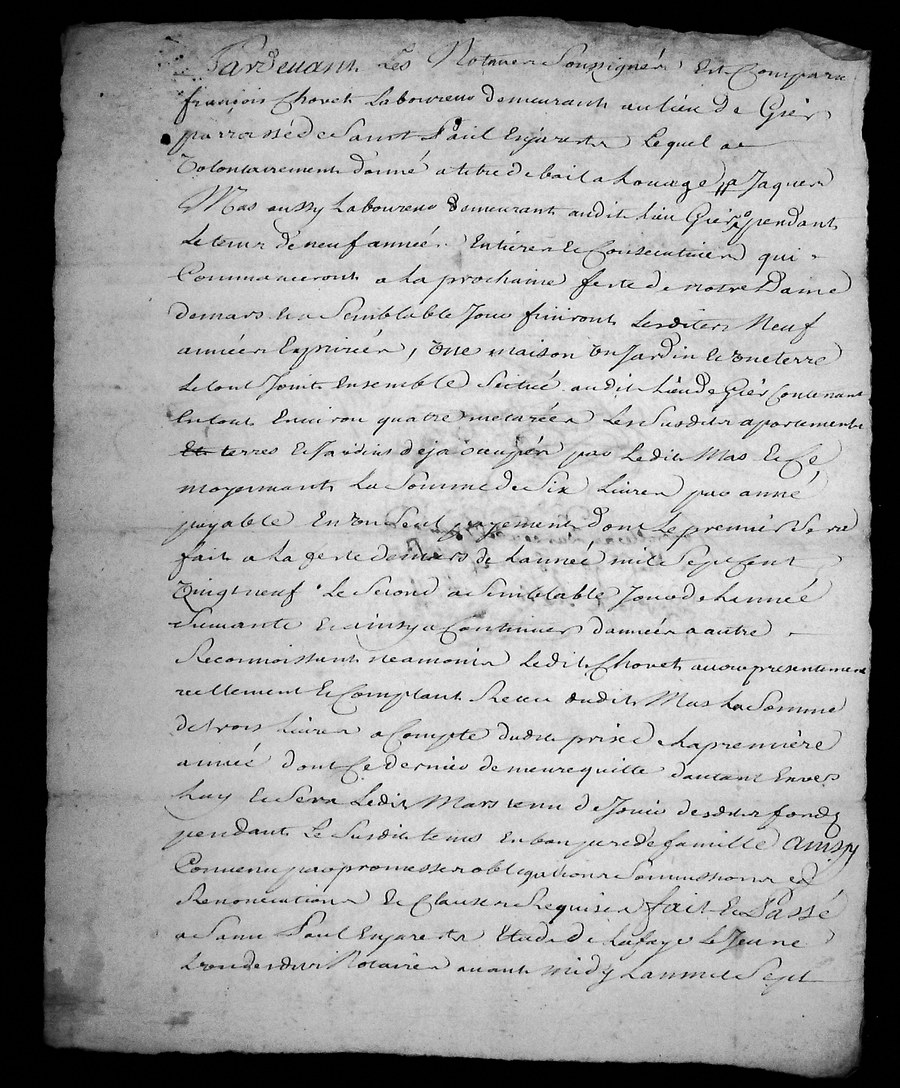 Pardevant Les Notaires Soussignés Est Comparu
françois Chovet Laboureur demeurant au lieu de Griés
parroisse de Sainct Paul Enjarest Lequel a
Volontairement donné a titre de bail a Louage a Jaques
Mas aussy Laboureur demeurant audit Lieu Griés pendant
Le tems de neuf années Entieres Et Consecutives qui
Commanceront a La prochaine feste de notre Dame
de mars Et a Semblable Jour finiront Lesdites Neuf
années Expirées, Une maison Un Jardin Et Une terre
Le tout Joint Ensemble Scitué audit Lieu de Griés Contenant
En tout Environ quatre metarées Les Susdits apartements
Et terres Et Jardins deja occupés par Ledit Mas Et Ce
moyennant La Somme de Six Livres par anné
payable En Un Seul payement dont Le premier Sera
fait a La feste de mars de Lanneé mil Sept Cent
Vingt neuf Le Second a Semblable Jour de Lanneé
Suivante Et ainsy a Continuer dannéé a autre
Reconnoissant neamoins Ledit Chovet avoir presentement
reellement Et Comptant Receu dudit Mas La Somme
de trois Livres a Compte dudit prix de La premiere
anneé dont Ce dernier demeure quitte dautant Envers
Luy Et Sera Ledit Mas tenu de Jouir desdits fonds
pendant Le Susdit tems En bon pere de famille ainsy
Convenu par promesses obligations Soumissions Et
Renonciations Et Clauses Requises fait Et Passé
a Sainct Paul Enjarest Etude de Lafaye Le Jeune
Lun desdits Notaires avant midy Lan mil Sept